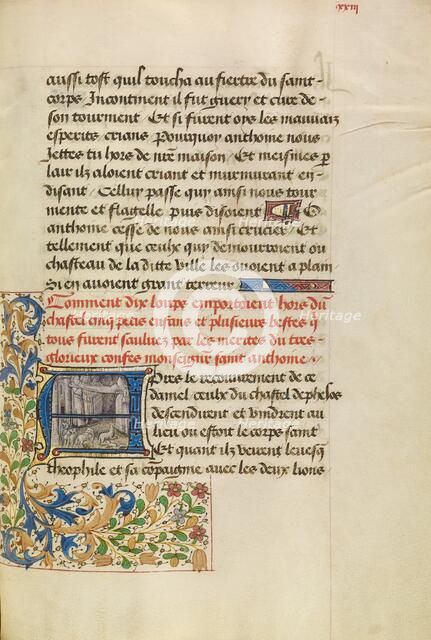 xxiii
aussi tost quil toucha au fiertre du saint
corps Incontinent il fut guery et cure de
son tourment Et si furent oys les mauvaiz
esperits crians Pourquoy anthome nous
Jettes tu hors de nre maison / Et meismes p
lair ilz aloient criant et murmurant en
disant / Celluy passe quy ainsi nous tour
mente et flagelle puis disoient O
anthome cesse de nous ainsi crucier / Et
tellement que ceulx quy demouroient ou
chasteau de la ditte ville les ouoient a plain
Si en avoient grant terreur
Comment dix loups emporterent hors du
chastel cinq petis enfans et plusieurs bestes q
tous furent saulvez par les merites du tres
glorieux confes monseigneur saint anthome /
Apres le retournement de ce
daniel ceulx du chastel dephelos
descendirent et vindrent au
lieu ou estoit le corps saint
Et quant ilz veirent levesq
theophile et sa compaignie avec les deux lions
Heritage
Heritage
Heritage